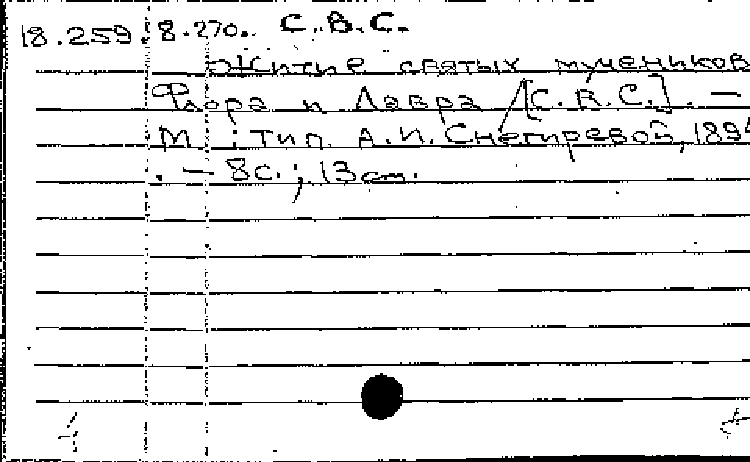 18.259.8.270. С.В.С.
Житие святых мучеников
Флора и Лавра / [С.В.С.]. —
М.: тип. А.И. Снегиревой, 189
. — 8с.; 13см.